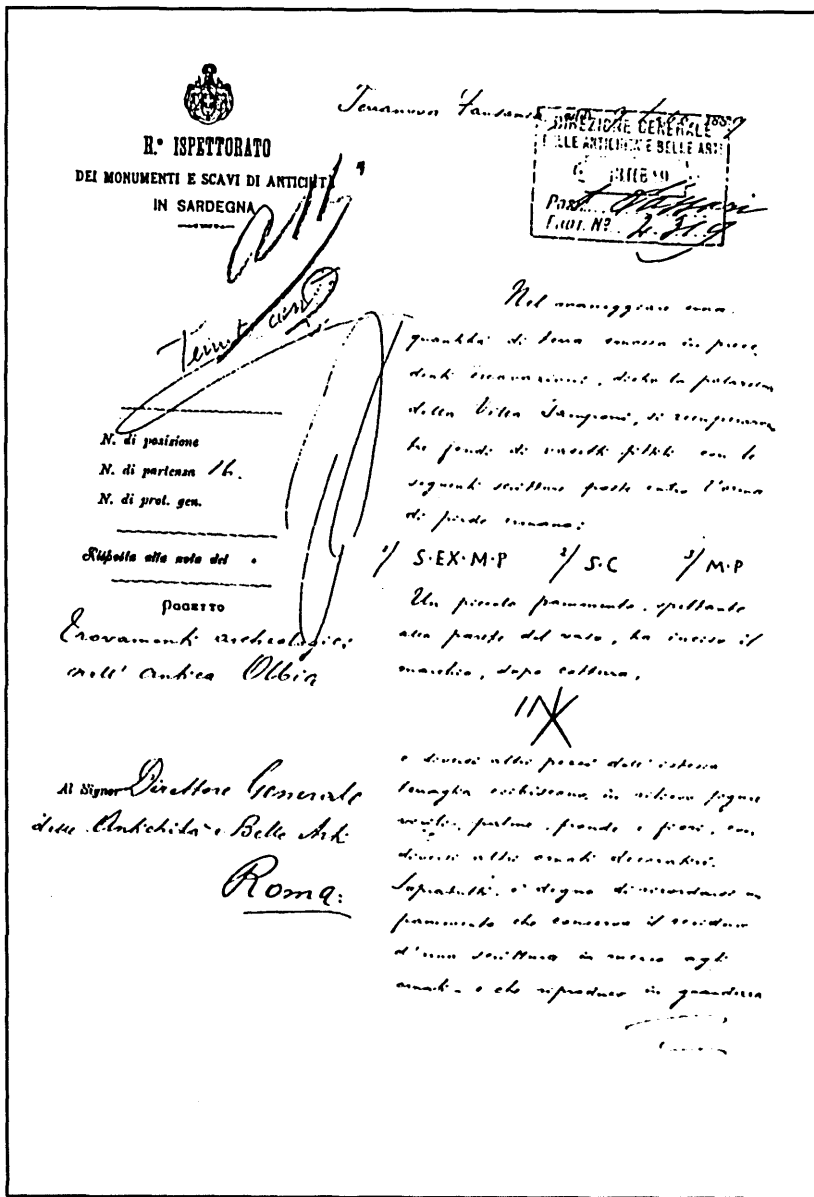 R.º ISPETTORATO
DEI MONUMENTI E SCAVI DI ANTICHITÀ
IN SARDEGNA
Terranova Fausania
DIREZIONE GENERALE
DELLE ANTICHITÀ E BELLE ARTI
Posiz.
Prot. Nº 2319
N. di posizione
N. di partenza 16.
N. di prot. gen.
Risposta alla nota del
OGGETTO
Trovamenti archeologici
nell' antica Olbia
Al Signor Direttore Generale
delle Antichità e Belle Arti
Roma:
Nel maneggiare una
quantità di terra smossa in prece
denti escavazioni, dietro la palazzina
della Villa Tamponi, si recuperarono
tre fondi di vasetti fittili con le
seguenti scritture poste entro l'orma
di piede umano:
1/ S·EX·M·P 2/ S·C 3/ M·P
Un piccolo frammento, spettante
alla parete del vaso, ha inciso il
marchio, dopo cottura,
e diversi altri pezzi dell'istessa
figure
virili, palme, fronde e fiori, con
diversi altri ornati decorativi.
Sopratutti, è degno di ricordarsi un
frammento che conserva il residuo
d'una scrittura in mezzo agli
ornati, e che riproduco in grandezza